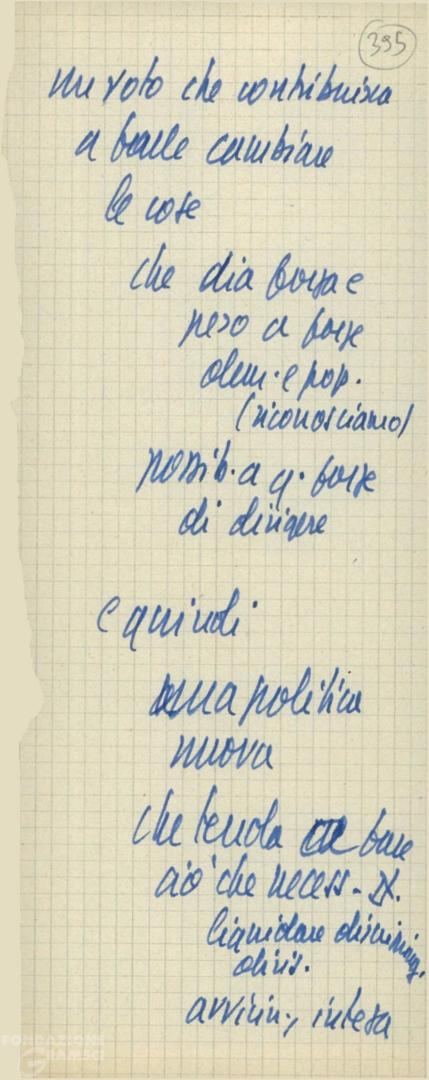 395
un voto che contribuisca
a farle cambiare
le cose
che dia forza e
peso a forze
dem. e pop.
(riconosciamo)
possib. a q. forze
di dirigere
e quindi
una politica
nuova
che tenda a fare
ciò che necess.
liquidare discriminaz.
divis.
avvicin., intesa
FONDAZIONE
GRAMSCI